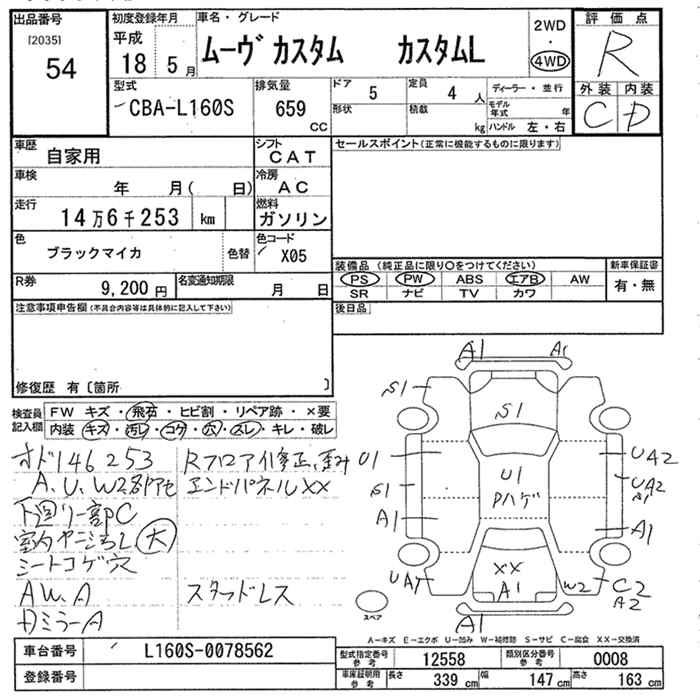 出品番号
[2035]
54
初度登録年月
平成
18 5月
車名・グレード
ムーヴ カスタム カスタムL
2WD
・
4WD
評価点
R
外装 内装
C D
型式
CBA-L160S
排気量
659
CC
ドア 5
形状
定員 4 人
積載 kg
ディーラー・並行
モデル年式 年
ハンドル 左・右
車歴
自家用
シフト
CAT
車検
年 月( 日)
冷房
AC
走行
14万6千253 km
燃料
ガソリン
色
ブラックマイカ
色替
色コード
X05
R券
9,200円
名変通知期限
月 日
セールスポイント(正常に機能するものに限ります)
装備品 (純正品に限り〇をつけてください)
PS PW ABS エアB AW
SR ナビ TV カワ
新車保証書
有・無
後日品
注意事項申告欄(不具合内容等は具体的に記入して下さい)
修復歴 有〔箇所 〕
検査員
記入欄
FW キズ・飛石・ヒビ割・リペア跡・×要
内装 キズ・汚レ・コゲ・穴・スレ・キレ・破レ
オド146253
A.U.W2
下廻り一部C
室内ヤニ汚レ 大
シートコゲ穴
AW.A
ミラーA
Rフロアイ修正、歪み
エンドパネルXX
スタッドレス
A1
A1
S1
S1
U1
UA2
U1
Pハゲ
S1
UA2
A1
A1
A1
XX
A1
W2
C2
A2
A1
スペア
A-キズ E-エクボ U-凹み W-補修跡 S-サビ C-腐食 XX-交換済
車台番号
L160S-0078562
登録番号
型式指定番号
参考
12558
類別区分番号
参考
0008
車庫証明用
参考
長さ 339 cm
幅 147 cm
高さ 163 cm